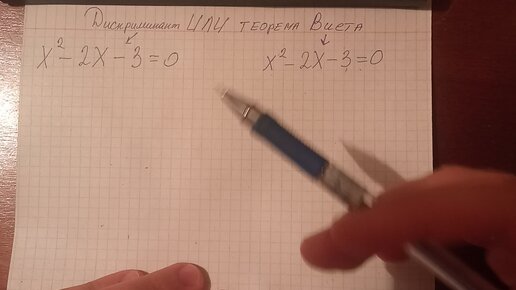 Дискриминант ИЛИ теорема Виета
x² - 2x - 3 = 0
x² - 2x - 3 = 0